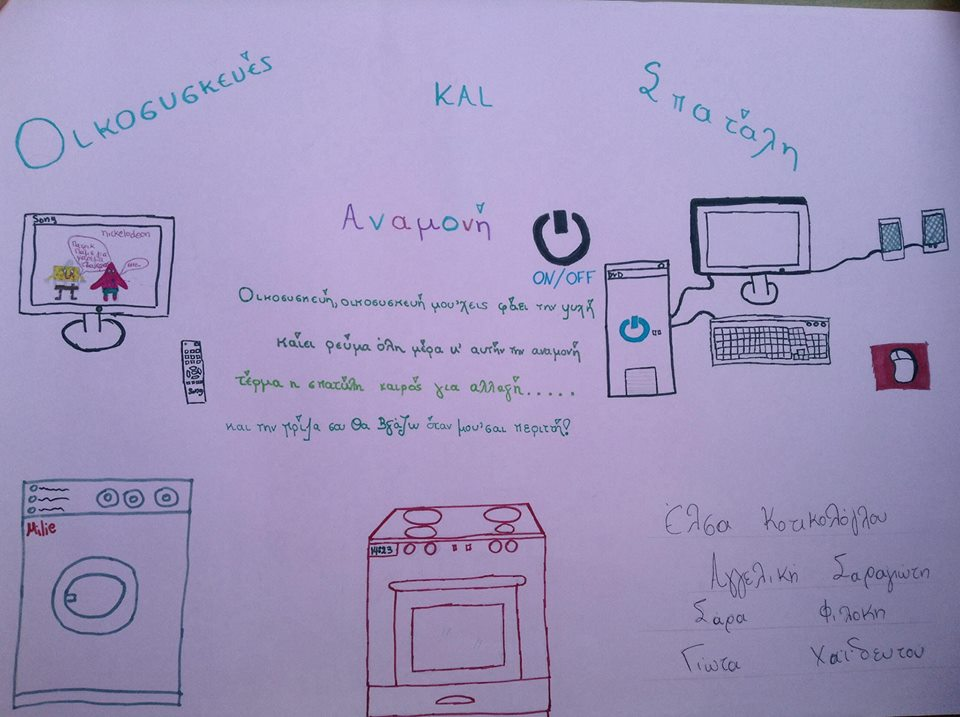 Οικοσυσκευές και Σπατάλη
Αναμονή
ON/OFF
Sony
nickelodeon
Πάτρικ
πάμε για
DVD
Οικοσυσκευή, οικοσυσκευή μου'χεις φάει την ψυχή
Καίει ρεύμα όλη μέρα μ' αυτήν την αναμονή
τέρμα η σπατάλη καιρός για αλλαγή.....
και την πρίζα σου θα βγάζω όταν μου'σαι περιτή?
Sony
Milie
14:23
Έλσα Κοτικολόγλου
Αγγελική Σαραγιώτη
Σάρα Φιλοκη
Γιώτα Χαϊδευτού